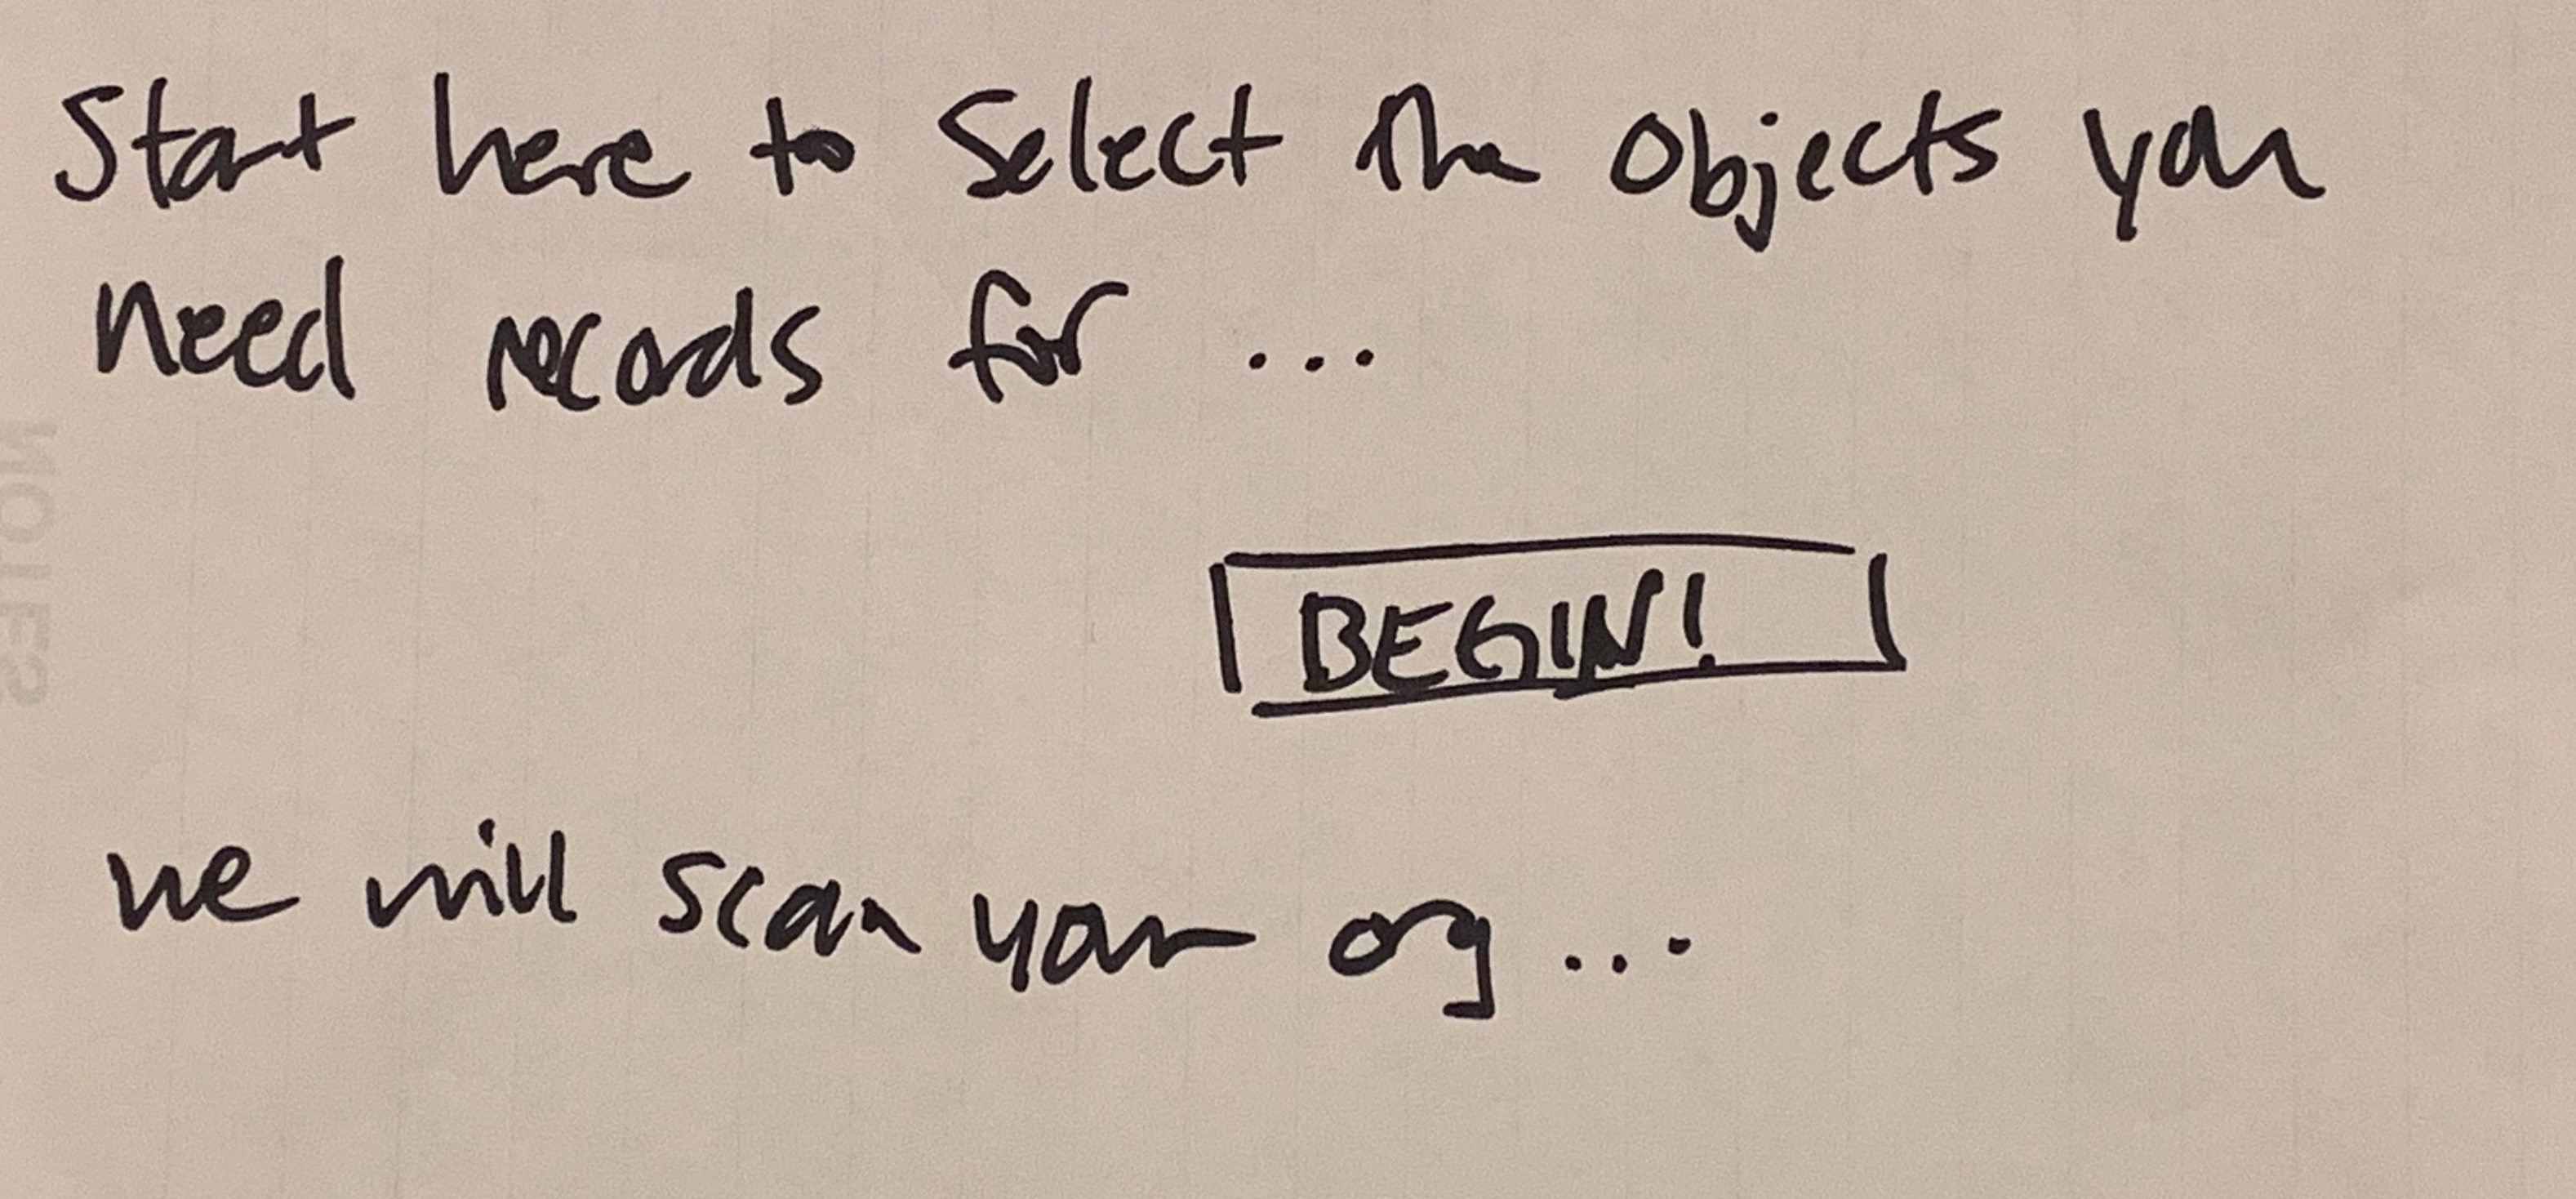 Start here to Select the objects you
need records for ...
BEGIN!
we will scan your org ...
NOTES